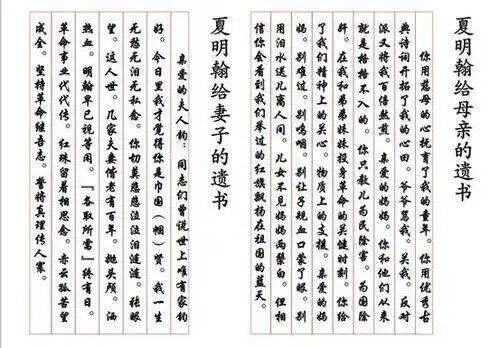 夏明翰给母亲的遗书
你用慈母的心抚育了我的童年。你用优秀古
典诗词开拓了我的心田。爷爷骂我。关我。反对
派又将我百倍煎熬。亲爱的妈妈。你和他们从来
就是格格不入的。你只教儿为民除害。为国除
奸。在我和弟弟妹妹投身革命的关键时刻。你给
了我们精神上的关心。物质上的支援。亲爱的妈
妈。别难过。别呜咽。别让子规血口蒙了眼。别
用泪水送儿离人间。儿女不见妈妈两鬓白。但相
信你会看到我们举过的红旗飘扬在祖国的蓝天。
夏明翰给妻子的遗书
亲爱的夫人钧：同志们曾说世上唯有家钧
好。今日里我才觉得你是巾国（帼）贤。我一生
无愁无泪无私念。你切莫悲悲泣泣泪涟涟。张眼
望。这人世。几家夫妻偕老有百年。抛头颅。洒
热血。明翰早已视等闲。「各取所需」终有日。
革命事业代代传。红珠留着相思念。赤云孤苦望
成全。坚持革命继吾志。誓将真理传人寰。